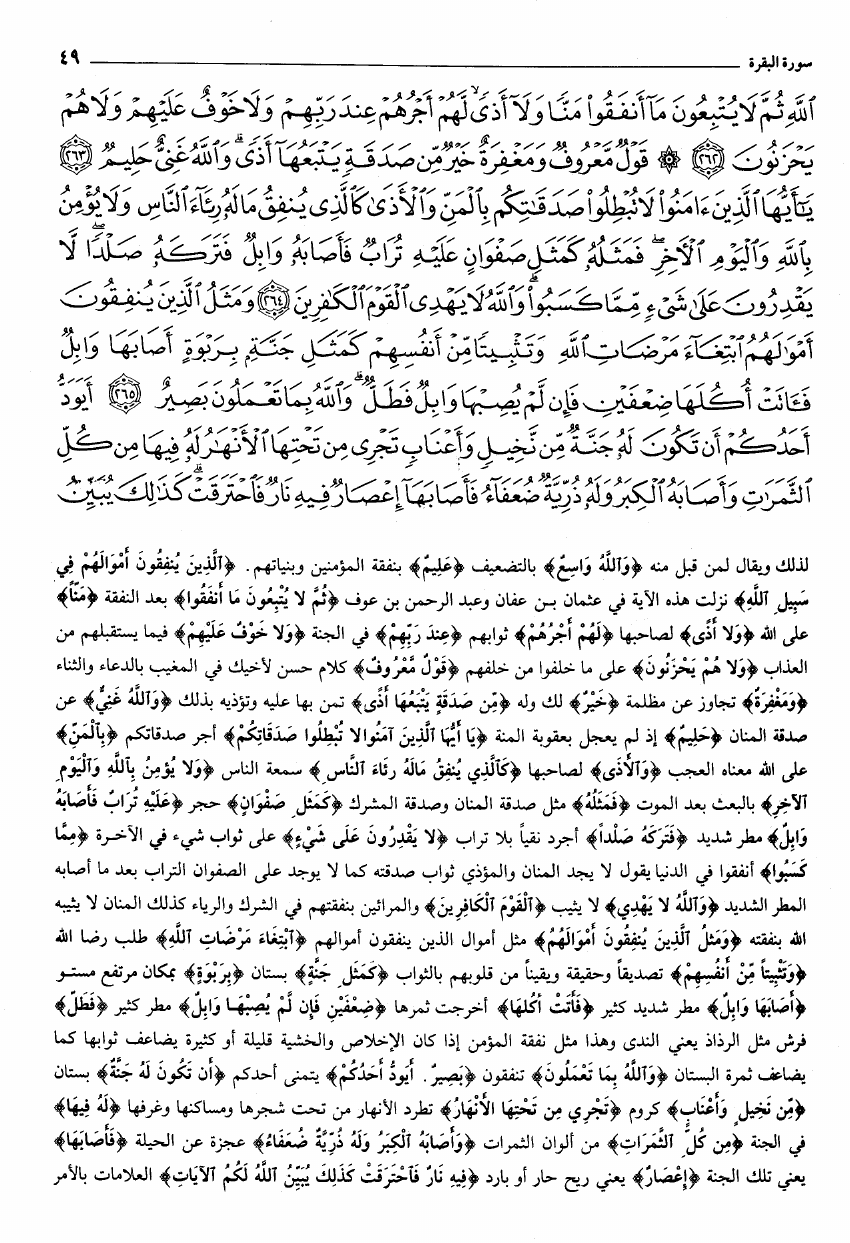 سورة البقرة ٤٩
ٱللَّهِ ثُمَّ لَا يُتْبِعُونَ مَآ أَنفَقُوا۟ مَنًّا وَلَآ أَذًى ۙ لَّهُمْ أَجْرُهُمْ عِندَ رَبِّهِمْ وَلَا خَوْفٌ عَلَيْهِمْ وَلَا هُمْ
يَحْزَنُونَ ﴿٢٦٢﴾ ۞ قَوْلٌ مَّعْرُوفٌ وَمَغْفِرَةٌ خَيْرٌ مِّن صَدَقَةٍ يَتْبَعُهَآ أَذًى ۗ وَٱللَّهُ غَنِىٌّ حَلِيمٌ ﴿٢٦٣﴾
يَـٰٓأَيُّهَا ٱلَّذِينَ ءَامَنُوا۟ لَا تُبْطِلُوا۟ صَدَقَـٰتِكُم بِٱلْمَنِّ وَٱلْأَذَىٰ كَٱلَّذِى يُنفِقُ مَالَهُۥ رِئَآءَ ٱلنَّاسِ وَلَا يُؤْمِنُ
بِٱللَّهِ وَٱلْيَوْمِ ٱلْـَٔاخِرِ ۖ فَمَثَلُهُۥ كَمَثَلِ صَفْوَانٍ عَلَيْهِ تُرَابٌ فَأَصَابَهُۥ وَابِلٌ فَتَرَكَهُۥ صَلْدًا ۖ لَّا
يَقْدِرُونَ عَلَىٰ شَىْءٍ مِّمَّا كَسَبُوا۟ ۗ وَٱللَّهُ لَا يَهْدِى ٱلْقَوْمَ ٱلْكَـٰفِرِينَ ﴿٢٦٤﴾ وَمَثَلُ ٱلَّذِينَ يُنفِقُونَ
أَمْوَٰلَهُمُ ٱبْتِغَآءَ مَرْضَاتِ ٱللَّهِ وَتَثْبِيتًا مِّنْ أَنفُسِهِمْ كَمَثَلِ جَنَّةٍۭ بِرَبْوَةٍ أَصَابَهَا وَابِلٌ
فَـَٔاتَتْ أُكُلَهَا ضِعْفَيْنِ فَإِن لَّمْ يُصِبْهَا وَابِلٌ فَطَلٌّ ۗ وَٱللَّهُ بِمَا تَعْمَلُونَ بَصِيرٌ ﴿٢٦٥﴾ أَيَوَدُّ
أَحَدُكُمْ أَن تَكُونَ لَهُۥ جَنَّةٌ مِّن نَّخِيلٍ وَأَعْنَابٍ تَجْرِى مِن تَحْتِهَا ٱلْأَنْهَـٰرُ لَهُۥ فِيهَا مِن كُلِّ
ٱلثَّمَرَٰتِ وَأَصَابَهُ ٱلْكِبَرُ وَلَهُۥ ذُرِّيَّةٌ ضُعَفَآءُ فَأَصَابَهَآ إِعْصَارٌ فِيهِ نَارٌ فَٱحْتَرَقَتْ ۗ كَذَٰلِكَ يُبَيِّنُ
لذلك ويقال لمن قبل منه ﴿وَٱللَّهُ وَاسِعٌ﴾ بالتضعيف ﴿عَلِيمٌ﴾ بنفقة المؤمنين وبنياتهم. ﴿ٱلَّذِينَ يُنْفِقُونَ أَمْوَالَهُمْ فِي
سَبِيلِ ٱللَّهِ﴾ نزلت هذه الآية في عثمان بن عفان وعبد الرحمن بن عوف ﴿ثُمَّ لا يُتْبِعُونَ مَا أَنفَقُوا﴾ بعد النفقة ﴿مَنّاً﴾
على الله ﴿وَلا أَذًى﴾ لصاحبها ﴿لَهُمْ أَجْرُهُمْ﴾ ثوابهم ﴿عِندَ رَبِّهِمْ﴾ في الجنة ﴿وَلا خَوْفٌ عَلَيْهِمْ﴾ فيما يستقبلهم من
العذاب ﴿وَلا هُمْ يَحْزَنُونَ﴾ على ما خلفوا من خلفهم ﴿قَوْلٌ مَّعْرُوفٌ﴾ كلام حسن لأخيك في المغيب بالدعاء والثناء
﴿وَمَغْفِرَةٌ﴾ تجاوز عن مظلمة ﴿خَيْرٌ﴾ لك وله ﴿مِّن صَدَقَةٍ يَتْبَعُهَا أَذًى﴾ تمن بها عليه وتؤذيه بذلك ﴿وَٱللَّهُ غَنِيٌّ﴾ عن
صدقة المنان ﴿حَلِيمٌ﴾ إذ لم يعجل بعقوبة المنة ﴿يَا أَيُّهَا ٱلَّذِينَ آمَنُوا لا تُبْطِلُوا صَدَقَاتِكُمْ﴾ أجر صدقاتكم ﴿بِٱلْمَنِّ﴾
على الله معناه العجب ﴿وَٱلأَذَى﴾ لصاحبها ﴿كَٱلَّذِي يُنفِقُ مَالَهُ رِئَاءَ ٱلنَّاسِ﴾ سمعة الناس ﴿وَلا يُؤْمِنُ بِٱللَّهِ وَٱلْيَوْمِ
ٱلآخِرِ﴾ بالبعث بعد الموت ﴿فَمَثَلُهُ﴾ مثل صدقة المنان وصدقة المشرك ﴿كَمَثَلِ صَفْوَانٍ﴾ حجر ﴿عَلَيْهِ تُرَابٌ فَأَصَابَهُ
وَابِلٌ﴾ مطر شديد ﴿فَتَرَكَهُ صَلْداً﴾ أجرد نقياً بلا تراب ﴿لا يَقْدِرُونَ عَلَى شَيْءٍ﴾ على ثواب شيء في الآخرة ﴿مِمَّا
كَسَبُوا﴾ أنفقوا في الدنيا يقول لا يجد المنان والمؤذي ثواب صدقته كما لا يوجد على الصفوان التراب بعد ما أصابه
المطر الشديد ﴿وَٱللَّهُ لا يَهْدِي﴾ لا يثيب ﴿ٱلْقَوْمَ ٱلْكَافِرِينَ﴾ والمرائين بنفقتهم في الشرك والرياء كذلك المنان لا يثيبه
الله بنفقته ﴿وَمَثَلُ ٱلَّذِينَ يُنفِقُونَ أَمْوَالَهُمُ﴾ مثل أموال الذين ينفقون أموالهم ﴿ٱبْتِغَاءَ مَرْضَاتِ ٱللَّهِ﴾ طلب رضا الله
﴿وَتَثْبِيتاً مِّنْ أَنفُسِهِمْ﴾ تصديقاً وحقيقة ويقيناً من قلوبهم بالثواب ﴿كَمَثَلِ جَنَّةٍ﴾ بستان ﴿بِرَبْوَةٍ﴾ بمكان مرتفع مستو
﴿أَصَابَهَا وَابِلٌ﴾ مطر شديد كثير ﴿فَآتَتْ أُكُلَهَا﴾ أخرجت ثمرها ﴿ضِعْفَيْنِ فَإِن لَّمْ يُصِبْهَا وَابِلٌ﴾ مطر كثير ﴿فَطَلٌّ﴾
فرش مثل الرذاذ يعني الندى وهذا مثل نفقة المؤمن إذا كان الإخلاص والخشية قليلة أو كثيرة يضاعف ثوابها كما
يضاعف ثمرة البستان ﴿وَٱللَّهُ بِمَا تَعْمَلُونَ﴾ تنفقون ﴿بَصِيرٌ. أَيَوَدُّ أَحَدُكُمْ﴾ يتمنى أحدكم ﴿أَن تَكُونَ لَهُ جَنَّةٌ﴾ بستان
﴿مِّن نَخِيلٍ وَأَعْنَابٍ﴾ كروم ﴿تَجْرِي مِن تَحْتِهَا ٱلأَنْهَارُ﴾ تطرد الأنهار من تحت شجرها ومساكنها وغرفها ﴿لَهُ فِيهَا﴾
في الجنة ﴿مِن كُلِّ ٱلثَّمَرَاتِ﴾ من ألوان الثمرات ﴿وَأَصَابَهُ ٱلْكِبَرُ وَلَهُ ذُرِّيَّةٌ ضُعَفَاءُ﴾ عجزة عن الحيلة ﴿فَأَصَابَهَا﴾
يعني تلك الجنة ﴿إِعْصَارٌ﴾ يعني ريح حار أو بارد ﴿فِيهِ نَارٌ فَٱحْتَرَقَتْ كَذَلِكَ يُبَيِّنُ ٱللَّهُ لَكُمُ ٱلآيَاتِ﴾ العلامات بالأمر